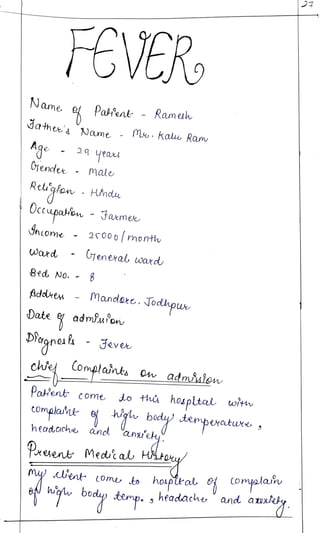 27
FEVER
Name of Patient - Ramesh
Father's Name - Mr. Kalu Ram
Age - 29 years
Gender - Male
Religion - Hindu
Occupation - Farmer
Income - 25000/month
Ward - General ward
Bed No. - 8
Address - Mandore, Jodhpur
Date of admission
Diagnosis - Fever
Chief Complaints on admission
Patient come to this hospital with
complaint of high body temperature,
headache and anxiety.
Present Medical History
My client come to hospital of complain
of high body temp., headache and anxiety.